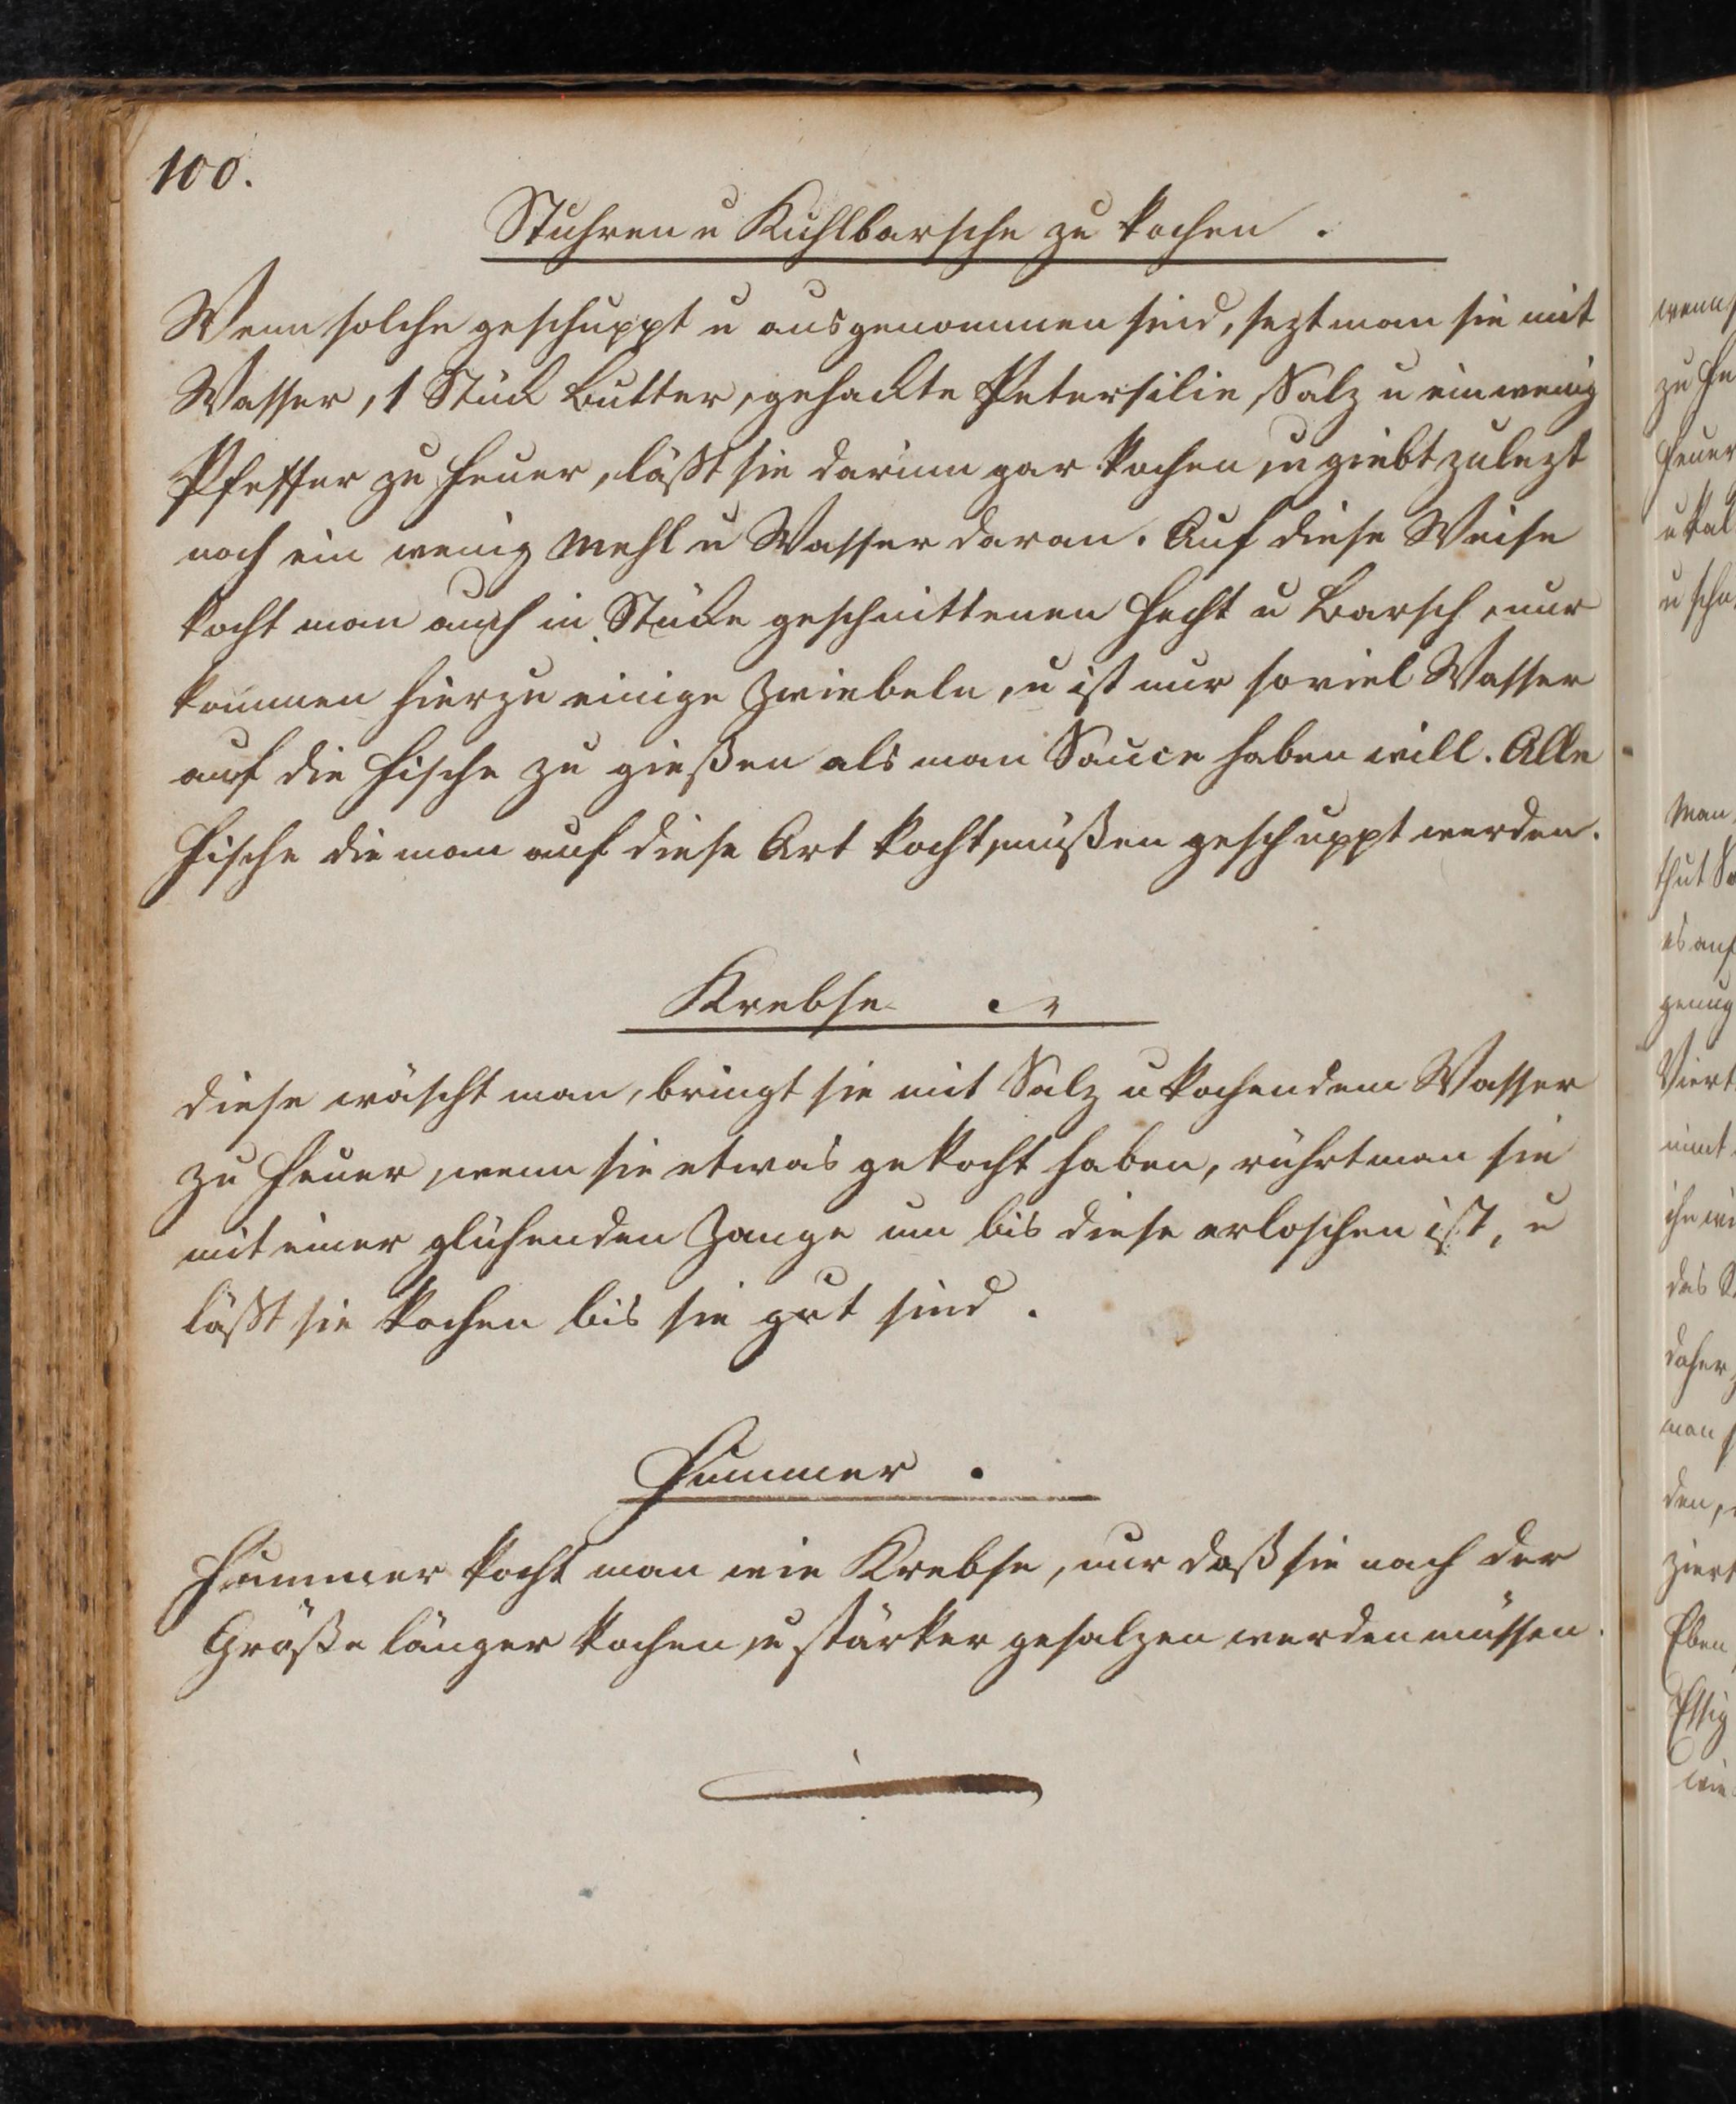 100.
Stuhren u Kuhlbarsche zu kochen.
Wenn solche geschuppt u ausgenommen sind, sezt man sie mit
Wasser, 1 Stück Butter, gehackte Petersilie, Salz u ein wenig
Pfeffer zu Feuer, läßt sie darinn gar kochen, u giebt zulezt
noch ein wenig Mehl u Wasser daran. Auf diese Weise
kocht man auch in Stücke geschnittenen Hecht u Barsch, nur
kommen hierzu einige Zwiebeln, u ist nur soviel Wasser
auf die Fische zu gießen als man Sauce haben will. Alle
Fische die man auf diese Art kocht, müßen geschuppt werden.
Krebse
diese wäscht man, bringt sie mit Salz u kochendem Wasser
zu Feuer, wenn sie etwas gekocht haben, rührt man sie
mit einer glühenden Zange um bis diese erloschen ist, u
läßt sie kochen bis sie gut sind.
Hummer.
Hummer kocht man wie Krebse, nur daß sie nach der
Größe länger kochen, u stärker gesalzen werden müssen.
zu
Feuer
Man
thut
es auf
genug
Viert
nimt
das
daher
man
den,
ziert
Eben
Essig
wie